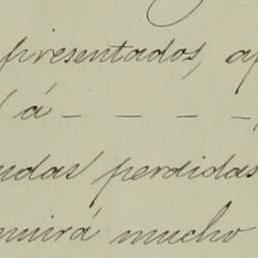 presentados, ap
á - - - -
udas perdidas
mirá mucho